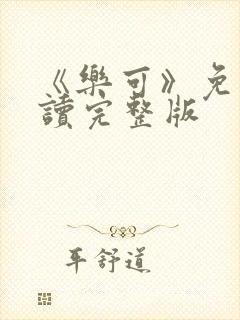 《樂可》免
讀完整版
平舒道